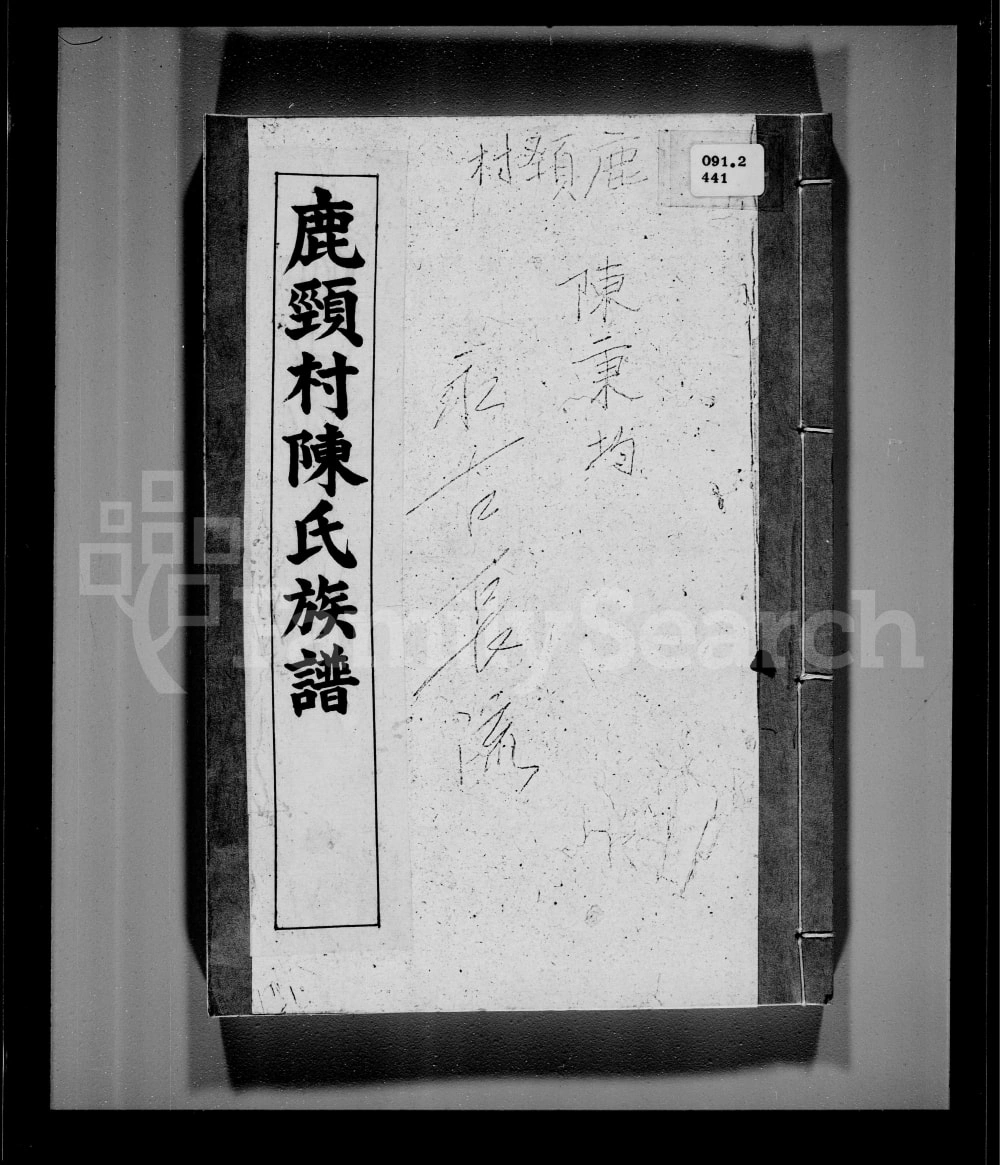 鹿頸村
091.2
441
陳秉均
永言長流
鹿頸村陳氏族譜
FamilySearch